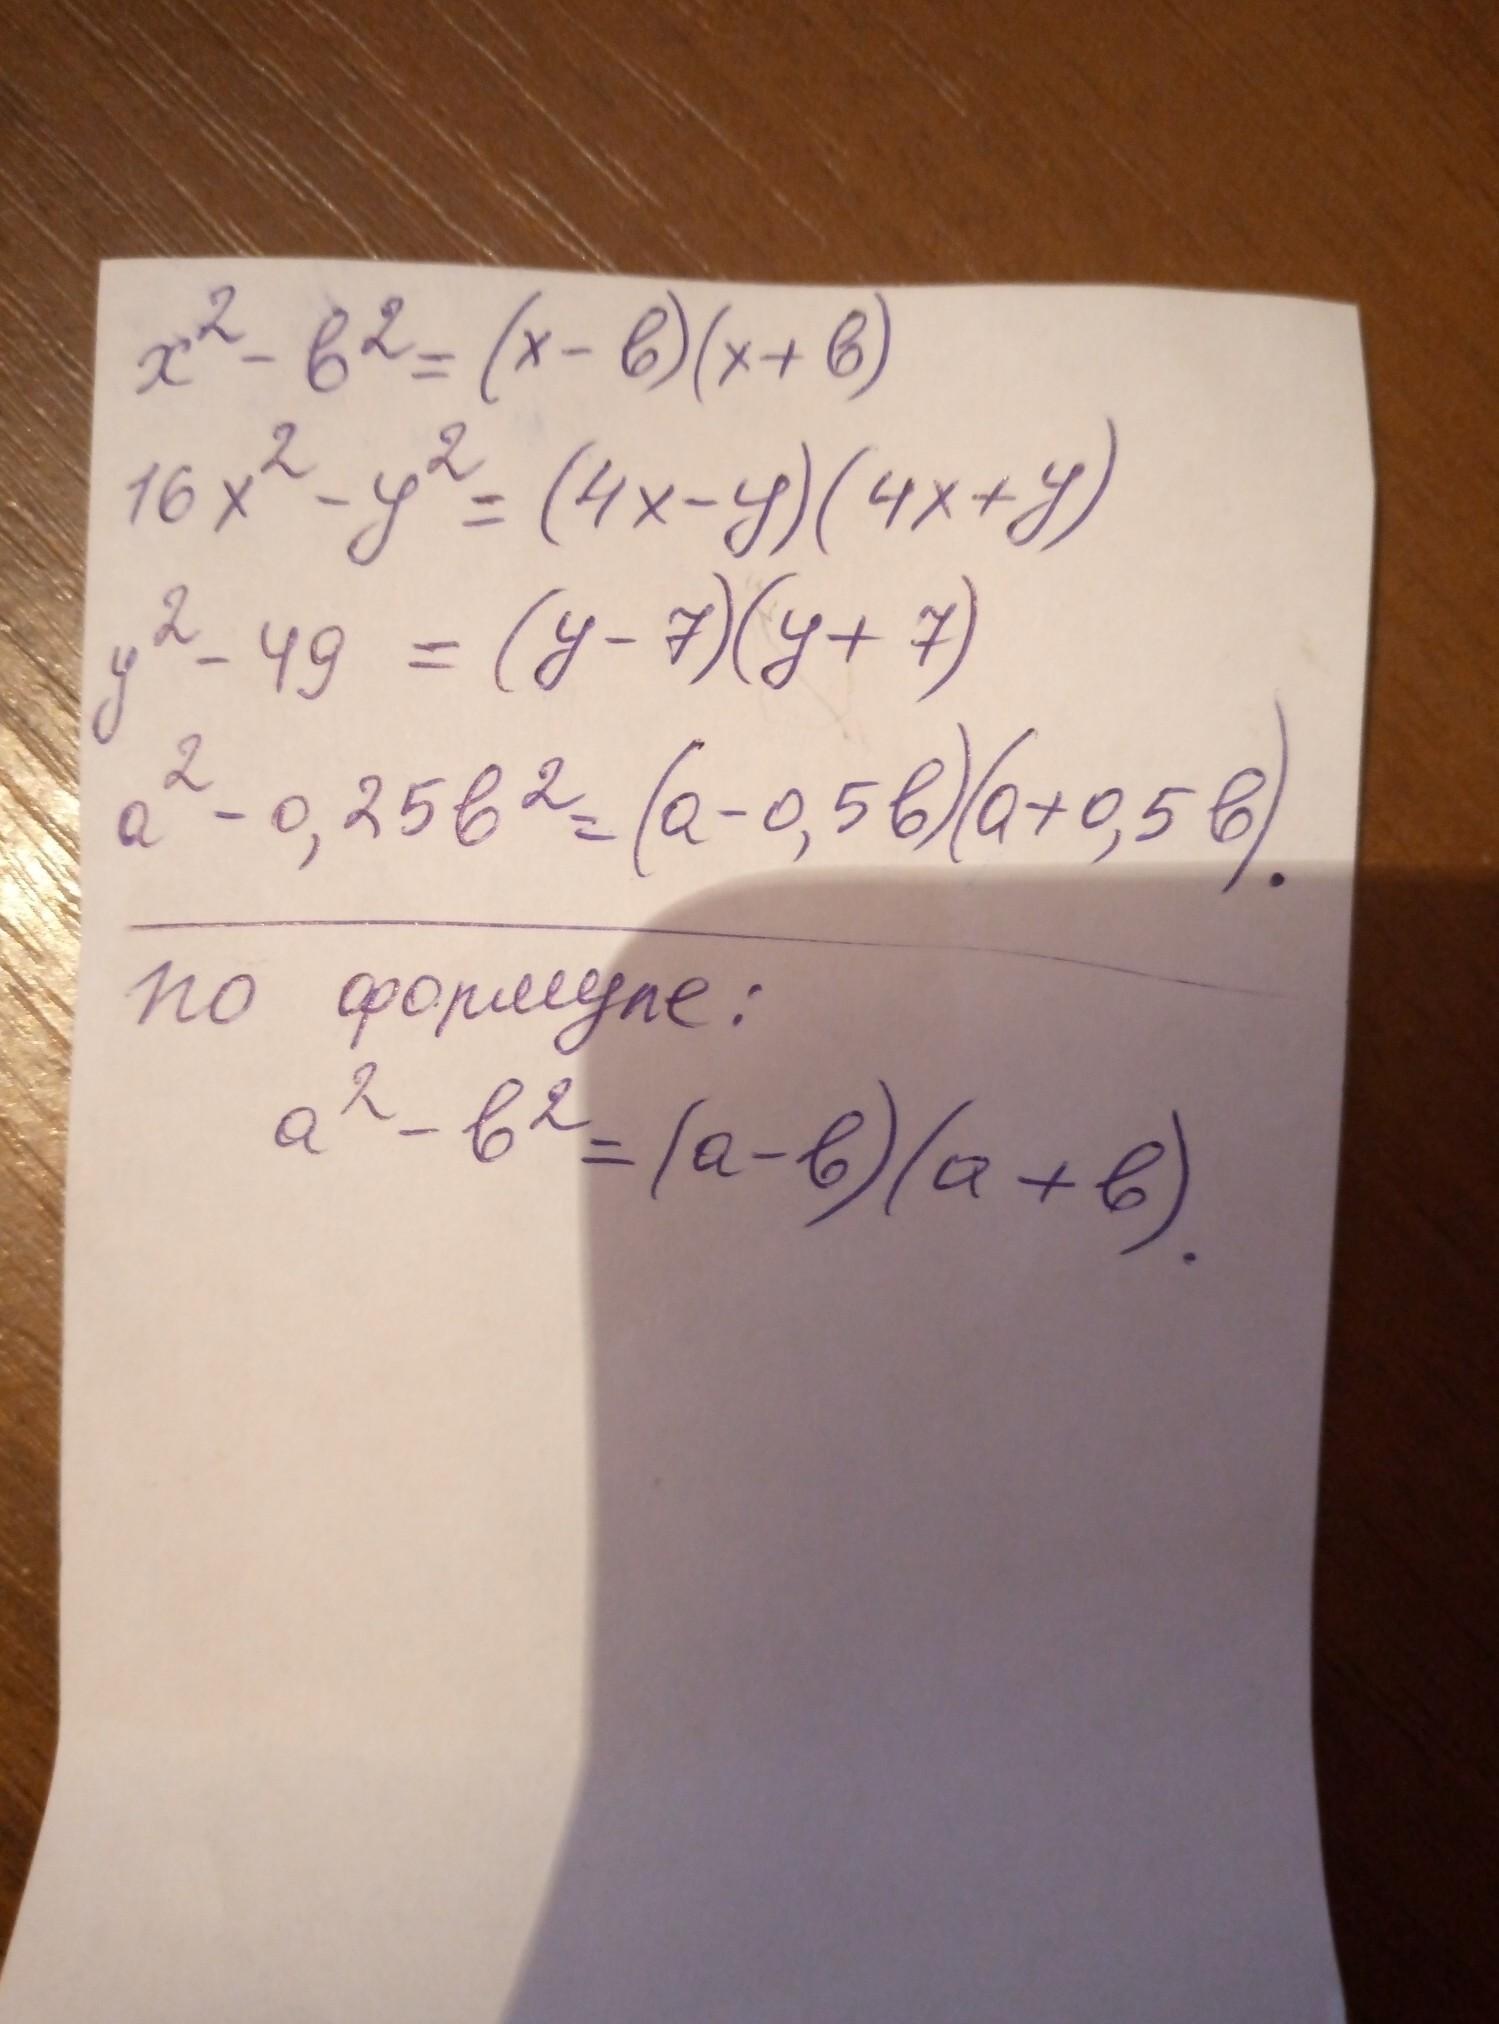 x² - b² = (x - b)(x + b)
16x² - y² = (4x - y)(4x + y)
y² - 49 = (y - 7)(y + 7)
a² - 0,25b² = (a - 0,5b)(a + 0,5b).
по формуле:
a² - b² = (a - b)(a + b).